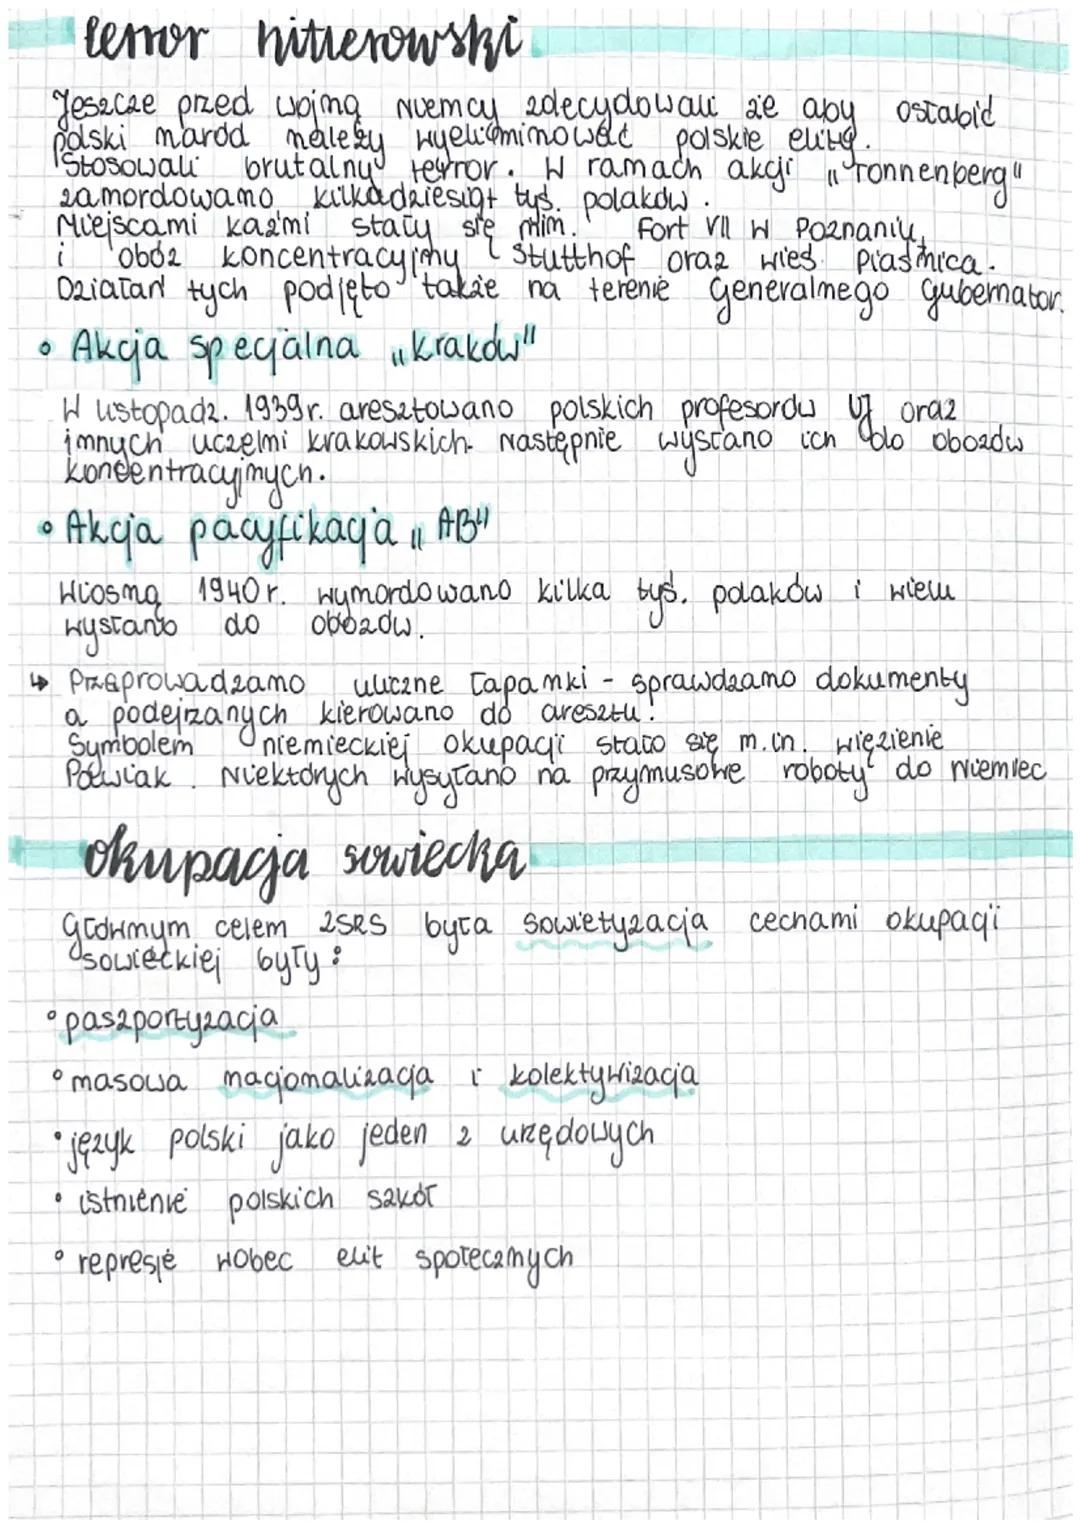 terror hitlerowski
Jeszcze przed wojną Niemcy zdecydowali że aby osłabić
polski naród należy wyeliminować polskie elity.
Stosowali brutalny terror. W ramach akcji „Tonnenberg"
zamordowano kilkadziesiąt tyś. polaków.
Miejscami kaźni stały się min. Fort VII w Poznaniu,
i obóz koncentracyjny Stutthof oraz wieś Piaśnica.
Działań tych podjęto także na terenie Generalnego Gubernator.
• Akcja specjalna „Kraków"
W listopadz. 1939r. aresztowano polskich profesorów UJ oraz
innych uczelni krakowskich. Następnie wysłano ich do obozów
koncentracyjnych.
• Akcja pacyfikacja „AB"
Wiosną 1940r. wymordowano kilka tyś. polaków i wielu
wysłano do obozów.
↳ Przeprowadzano uliczne łapanki - sprawdzano dokumenty
a podejrzanych kierowano do aresztu.
Symbolem niemieckiej okupacji stało się m.in. więzienie
Pawiak. Niektórych wysyłano na przymusowe roboty do Niemiec
okupacja sowiecka
Głównym celem ZSRS była sowietyzacja cechami okupacji
sowieckiej były:
• paszportyzacja
• masowa nacjonalizacja i kolektywizacja
• język polski jako jeden z urzędowych
• istnienie polskich szkół
• represje wobec elit społecznych